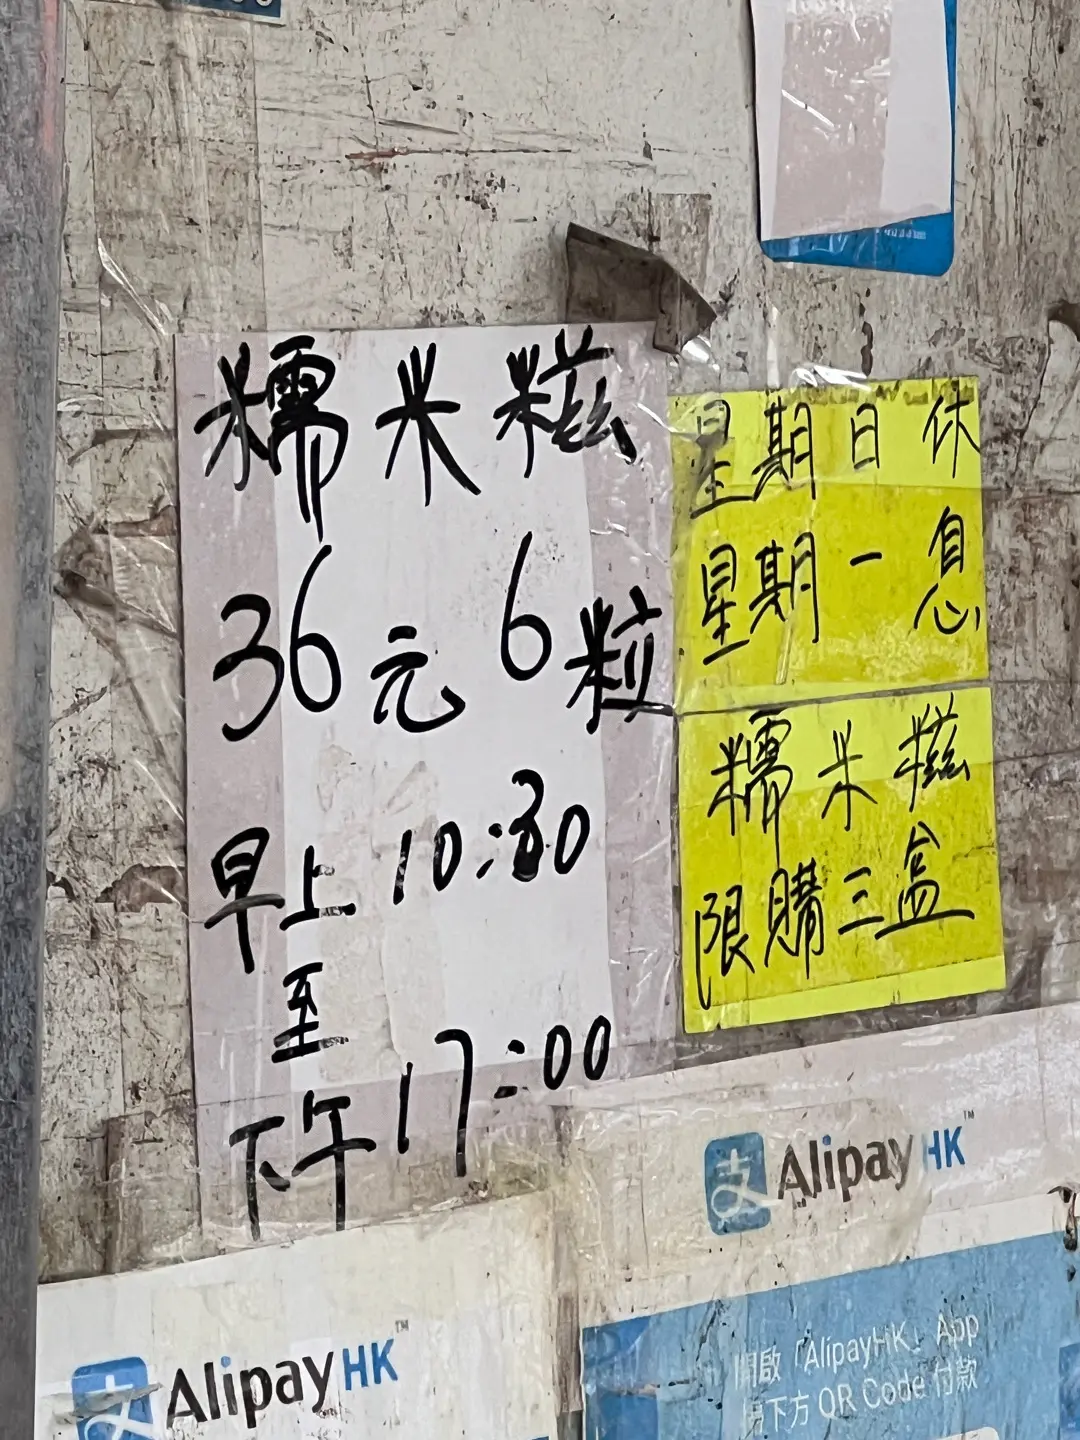 糯米糍
36元 6粒
早上 10:30
至
下午 17:00
星期日休
星期一息
糯米糍
限購三盒
AlipayHK™
AlipayHK™
開啟「AlipayHK」App
下方 QR Code 付款